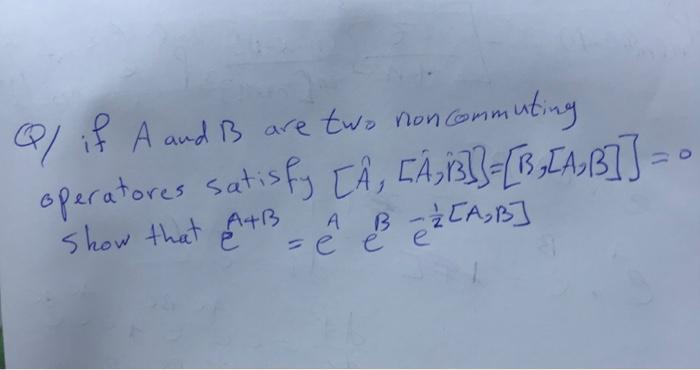 Q/ if A and B are two noncommuting
operatores satisfy [Â, [Â,B̂]]=[B,[A,B]]=0
show that e^{A+B} = e^{A} e^{B} e^{-\frac{1}{2}[A,B]}